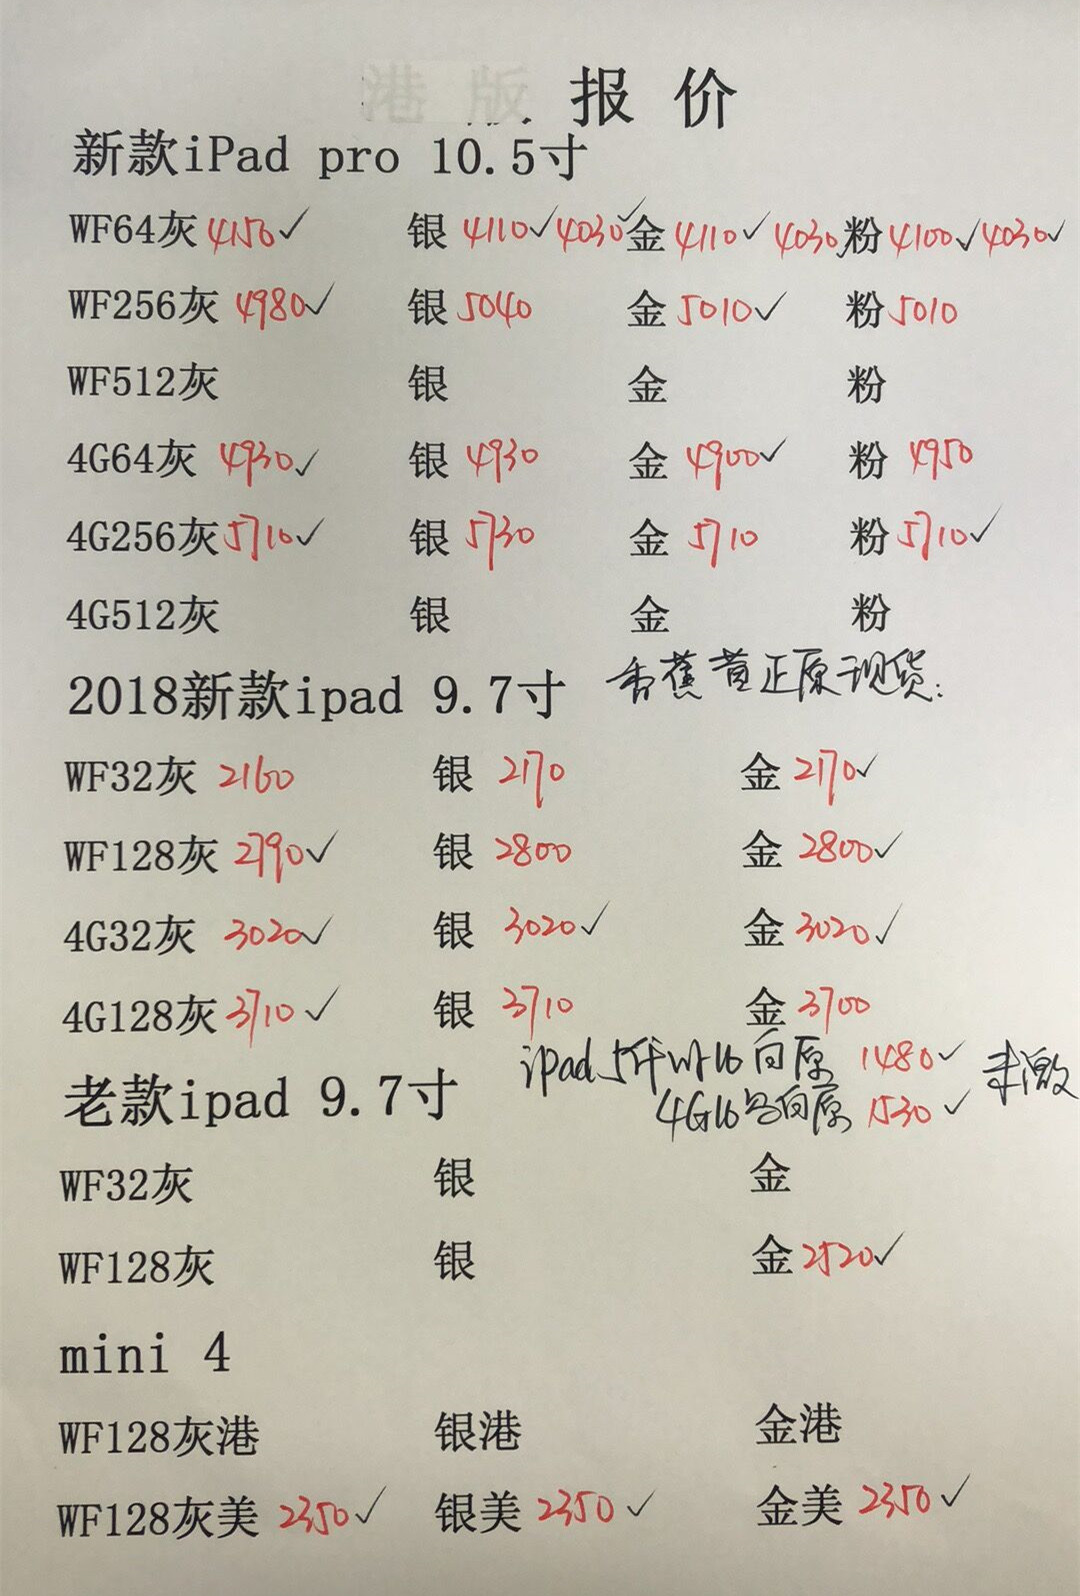 港版 报价
新款iPad pro 10.5寸
WF64灰 4150✓ 银 4110✓ 4030✓ 金 4110✓ 4030, 粉 4100✓ 4030✓
WF256灰 4980✓ 银 5040 金 5010✓ 粉 5010
WF512灰 银 金 粉
4G64灰 4930✓ 银 4930 金 4900✓ 粉 4950
4G256灰 5710✓ 银 5730 金 5710 粉 5710✓
4G512灰 银 金 粉
2018新款ipad 9.7寸 香蕉黄正原现货:
WF32灰 2160 银 2170 金 2170✓
WF128灰 2790✓ 银 2800 金 2800✓
4G32灰 3020✓ 银 3020✓ 金 3020✓
4G128灰 3710✓ 银 3710 金 3700
ipad 5代wf16 白原 1480✓ 未激
老款ipad 9.7寸 4G16 白原 1530✓
WF32灰 银 金
WF128灰 银 金 2520✓
mini 4
WF128灰港 银港 金港
WF128灰美 2350✓ 银美 2350✓ 金美 2350✓